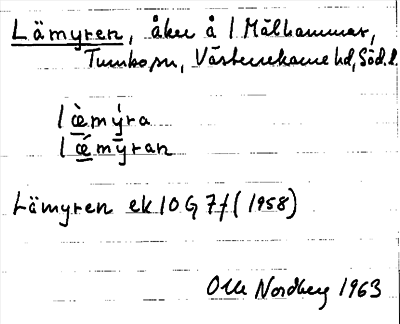 Lämyren, åker å / Mälhammar,
Tumbo sn, Västerrekarne hd, Söd. l.
l æ̀mýra
l ǽmyran
Lämyren ek 10G 7f (1958)
Olle Nordberg 1963